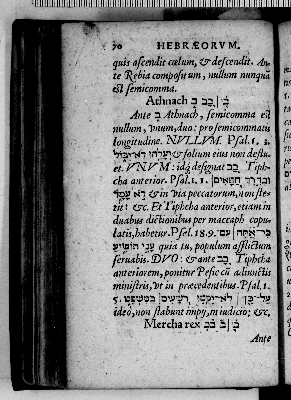 70 HEBRÆORVM.
quis ascendit cœlum, & descendit. An-
te Rebia compositum, nullum nunquã
est semicomma.
Athnach
Ante Athnach, semicomma est
nullum, vnum, duo: pro semicommatis
longitudine. NVLLVM. Psal. 1. 3.
וְעָלֵהוּ לֹא־יִבּוֹל & folium eius non deflu-
et. VNVM: idq́; designat Tiph-
cha anterior. Psal. 1. 1.
וּבְדֶרֶךְ חַטָּאִים | לֹא עָמָד & in via peccatorum, non ste-
tit: &c. Et Tiphcha anterior, etiam in
duabus dictionibus per maccaph copu-
latis, habetur. Psal. 18. 9.
כִּי־אַתָּה | עַם־עָנִי תוֹשִׁיעַ quia tu, populum afflictum
seruabis. DVO: & ante Tiphcha
anteriorem, ponitur Pesic cũ adiunctis
ministris, vt in præcedentibus. Psal. 1.
5. עַל־כֵּן | לֹא־יָקֻמוּ רְשָׁעִים | בַּמִּשְׁפָּט
ideo, non stabunt impij, in iudicio; &c,
Mercha rex
Ante